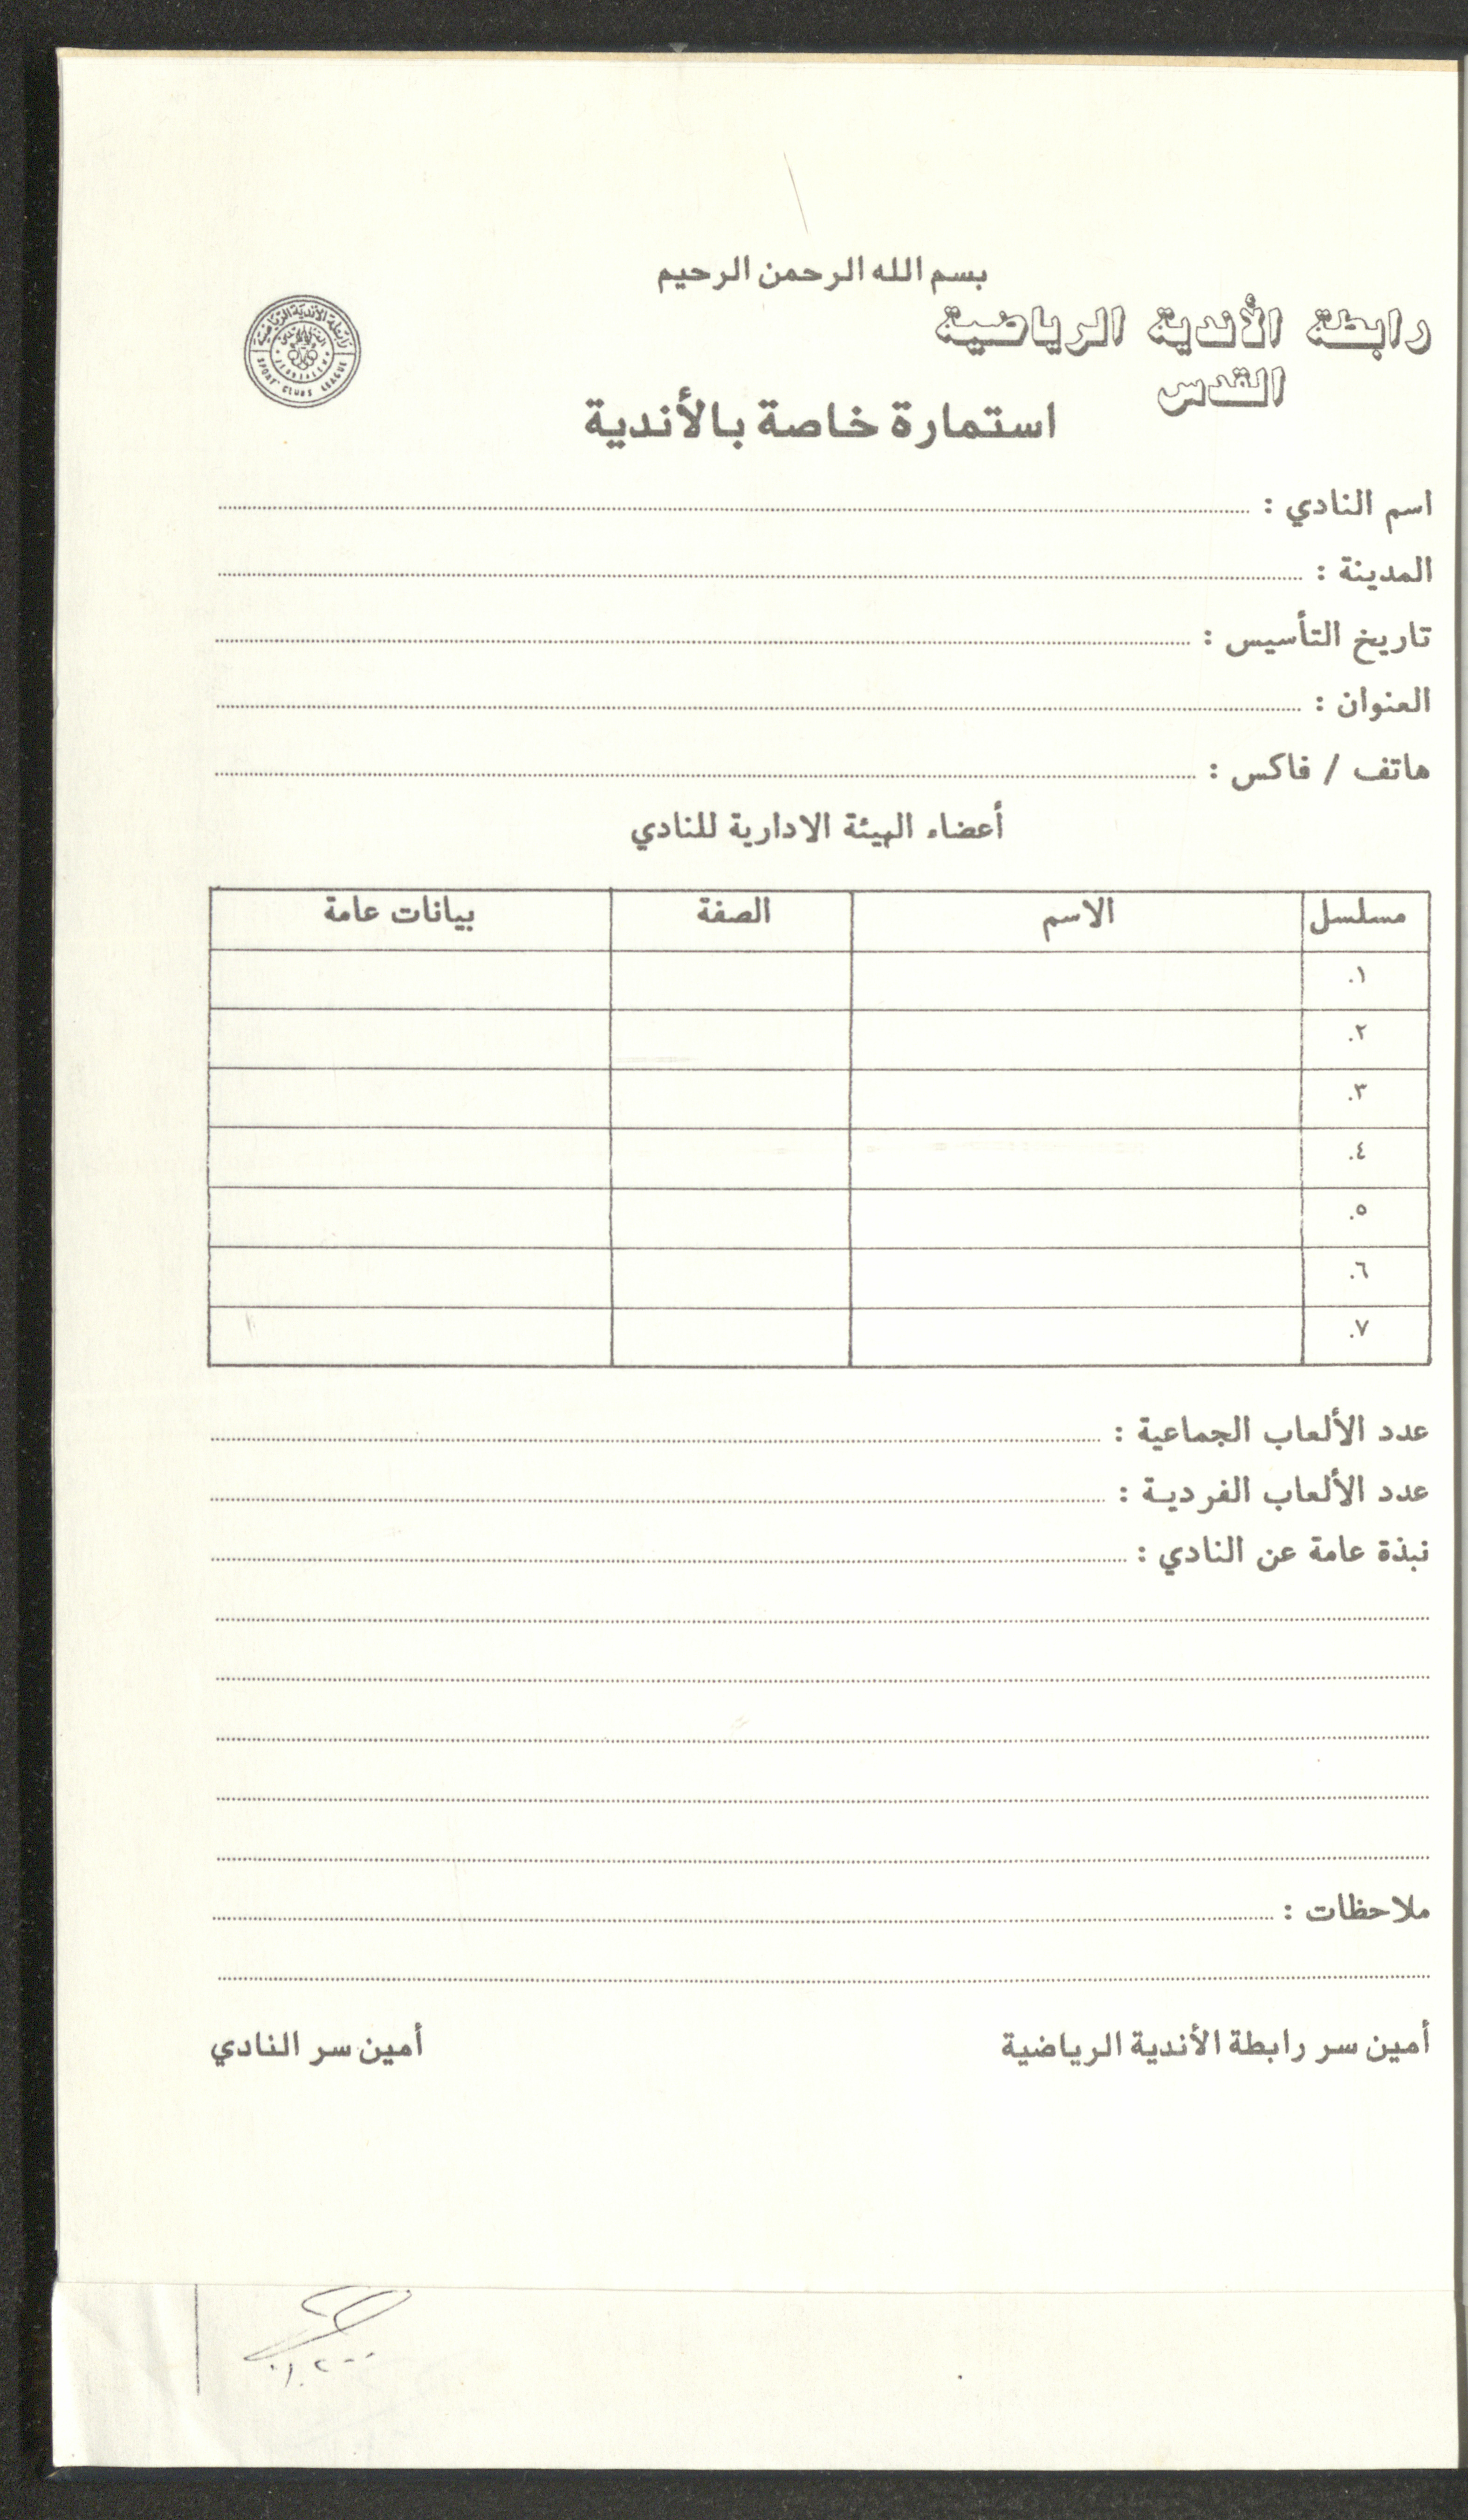 بسم الله الرحمن الرحيم
رابطة الأندية الرياضية
القدس
رابطة الأندية الرياضية
SPORT CLUBS LEAGUE
استمارة خاصة بالأندية
اسم النادي :
المدينة :
تاريخ التأسيس :
العنوان :
هاتف / فاكس :
أعضاء الهيئة الادارية للنادي
مسلسل الاسم الصفة بيانات عامة
١.
٢.
٣.
٤.
٥.
٦.
٧.
عدد الألعاب الجماعية :
عدد الألعاب الفردية :
نبذة عامة عن النادي :
ملاحظات :
أمين سر رابطة الأندية الرياضية أمين سر النادي